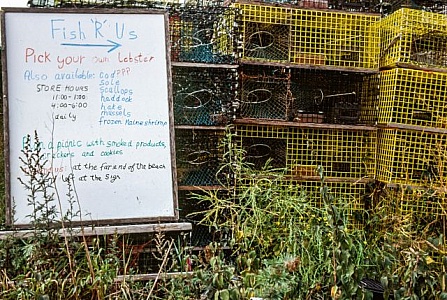 Fish 'R' Us
Pick your own Lobster
Also available: Cod???
Sole
STORE HOURS Scallops
11:00-1:00 haddock
4:00-6:00 hake
daily mussels
frozen Maine shrimp
a picnic with smoked products,
crackers and cookies
at the far end of the beach
left at the sign